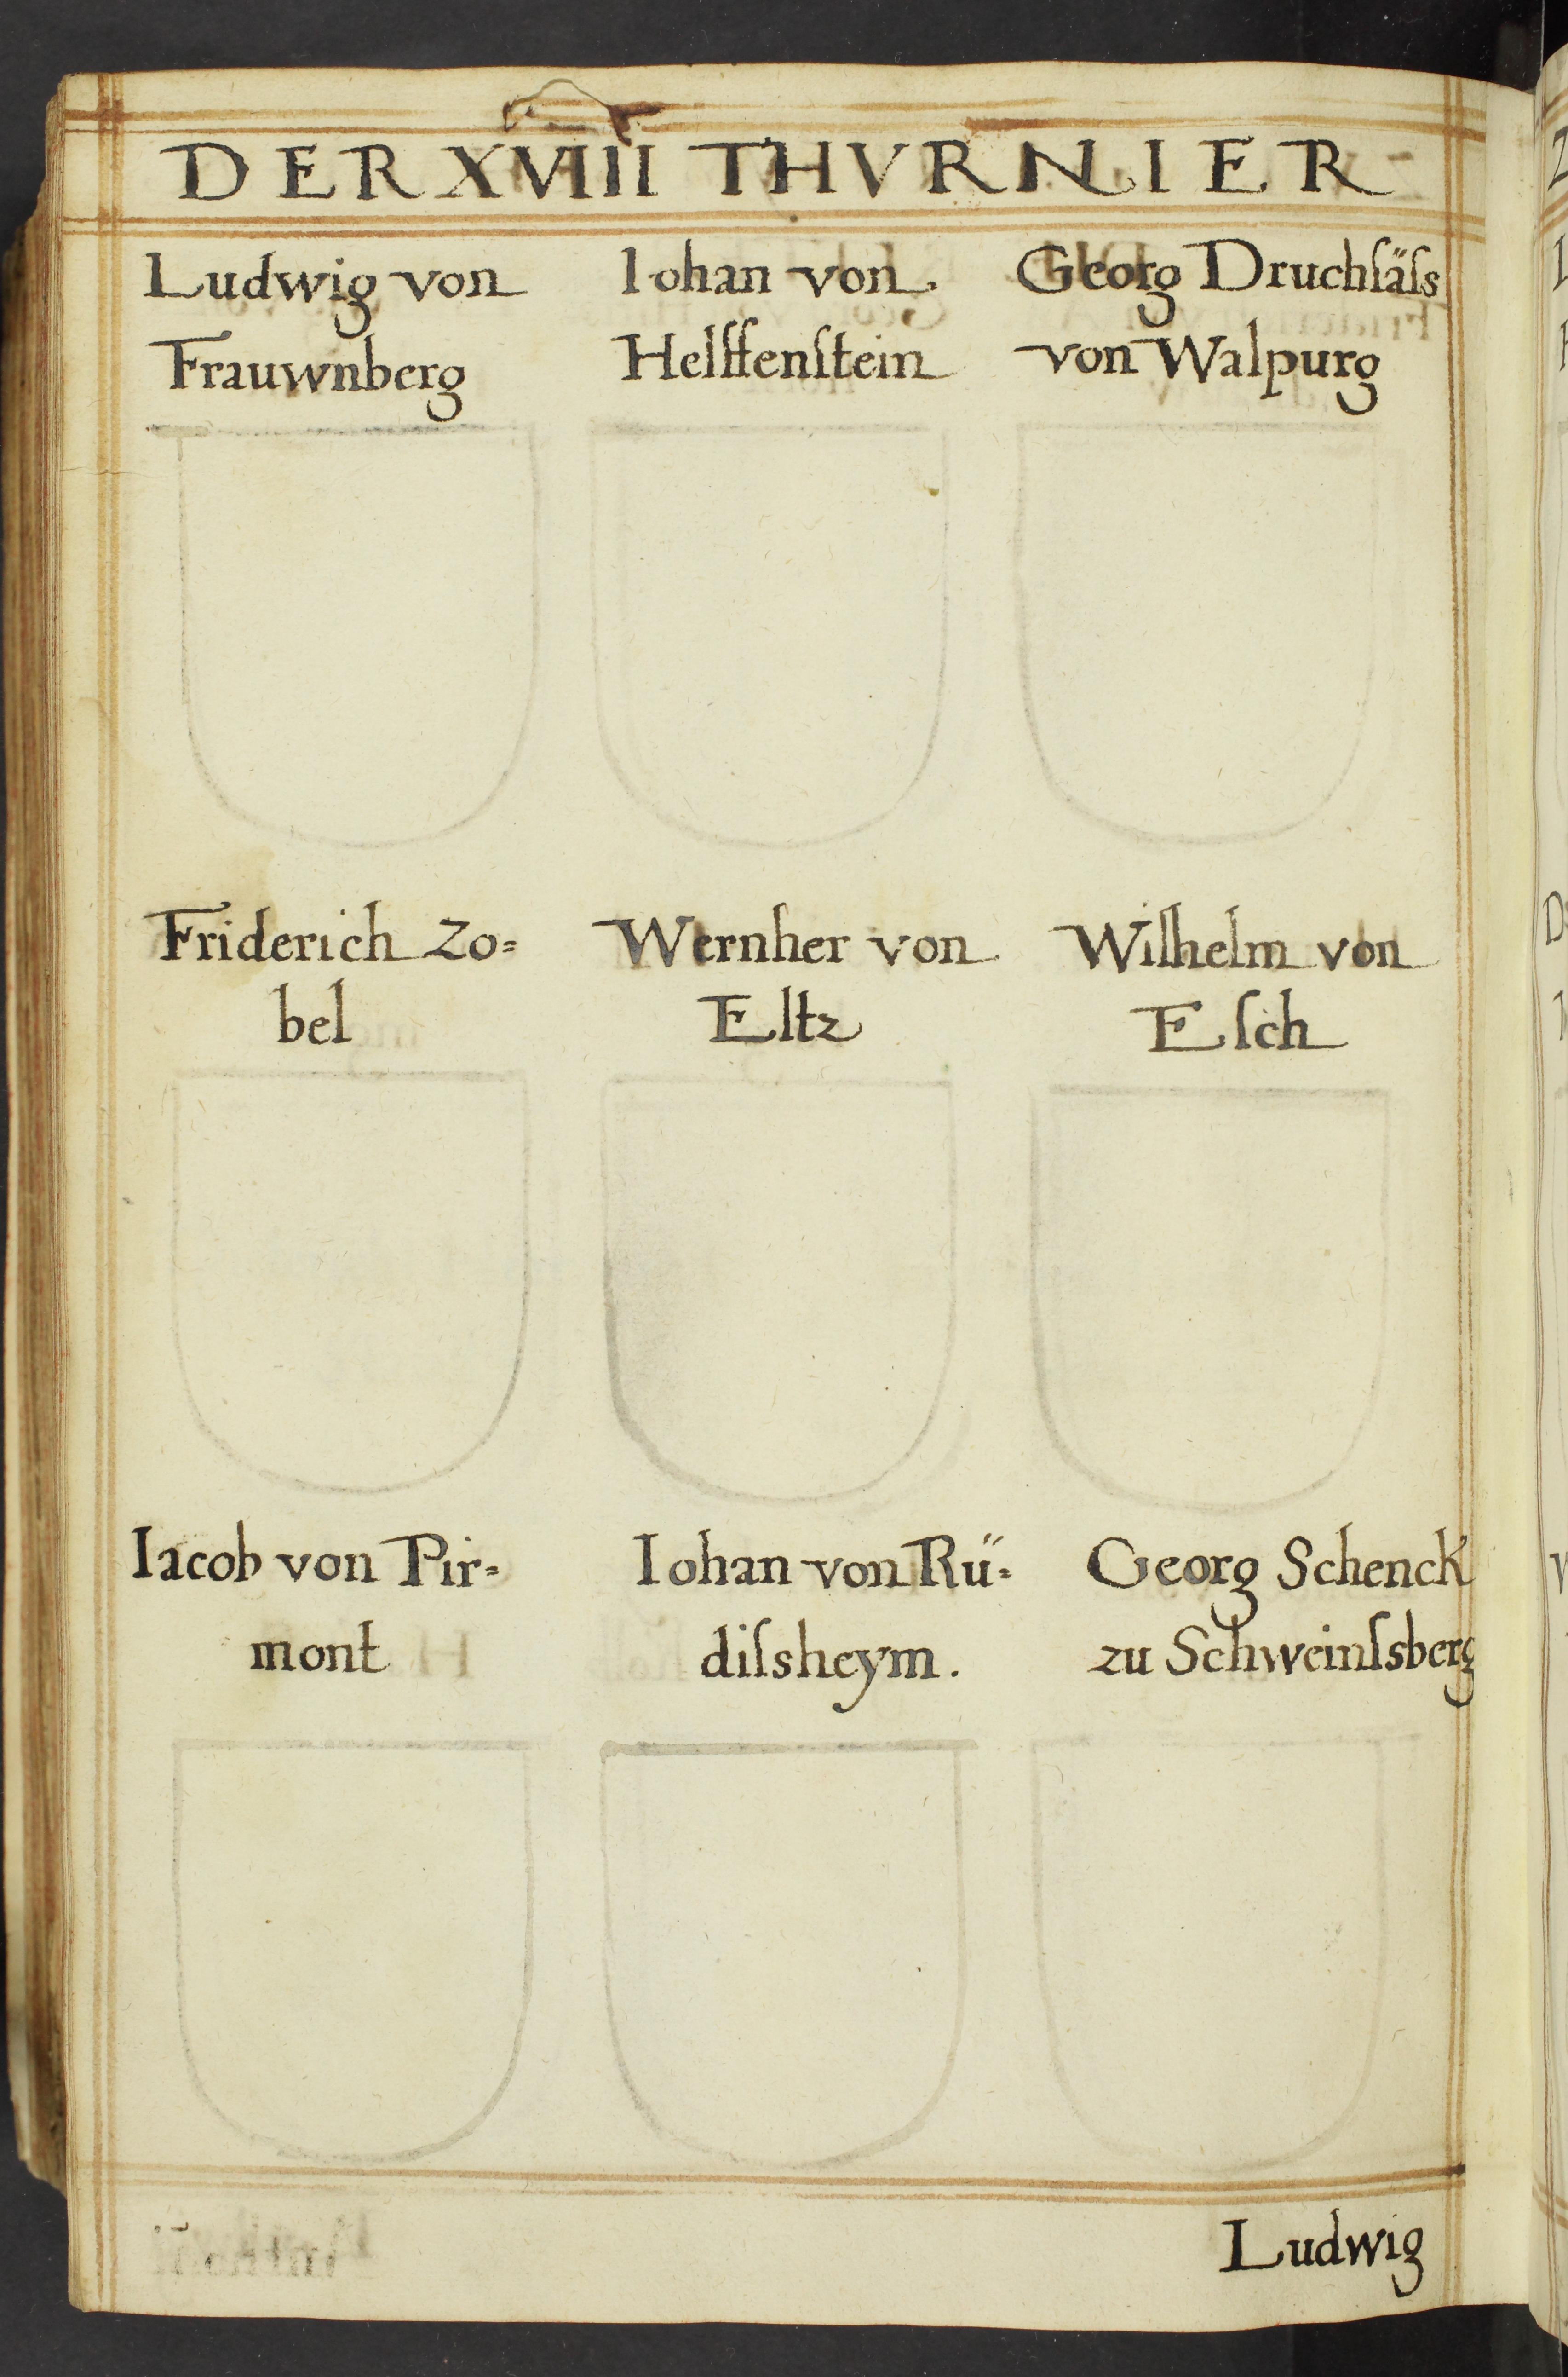 DER XVIII THVRNIER
Ludwig von
Frauwnberg
Iohan von
Helffenſtein
Georg Druchſäſs
von Walpurg
Friderich Zo=
bel
Wernher von
Eltz
Wilhelm von
Eſch
Iacob von Pir=
mont
Iohan von Rü=
diſsheym.
Georg Schenck
zu Schweinſsberg
Ludwig